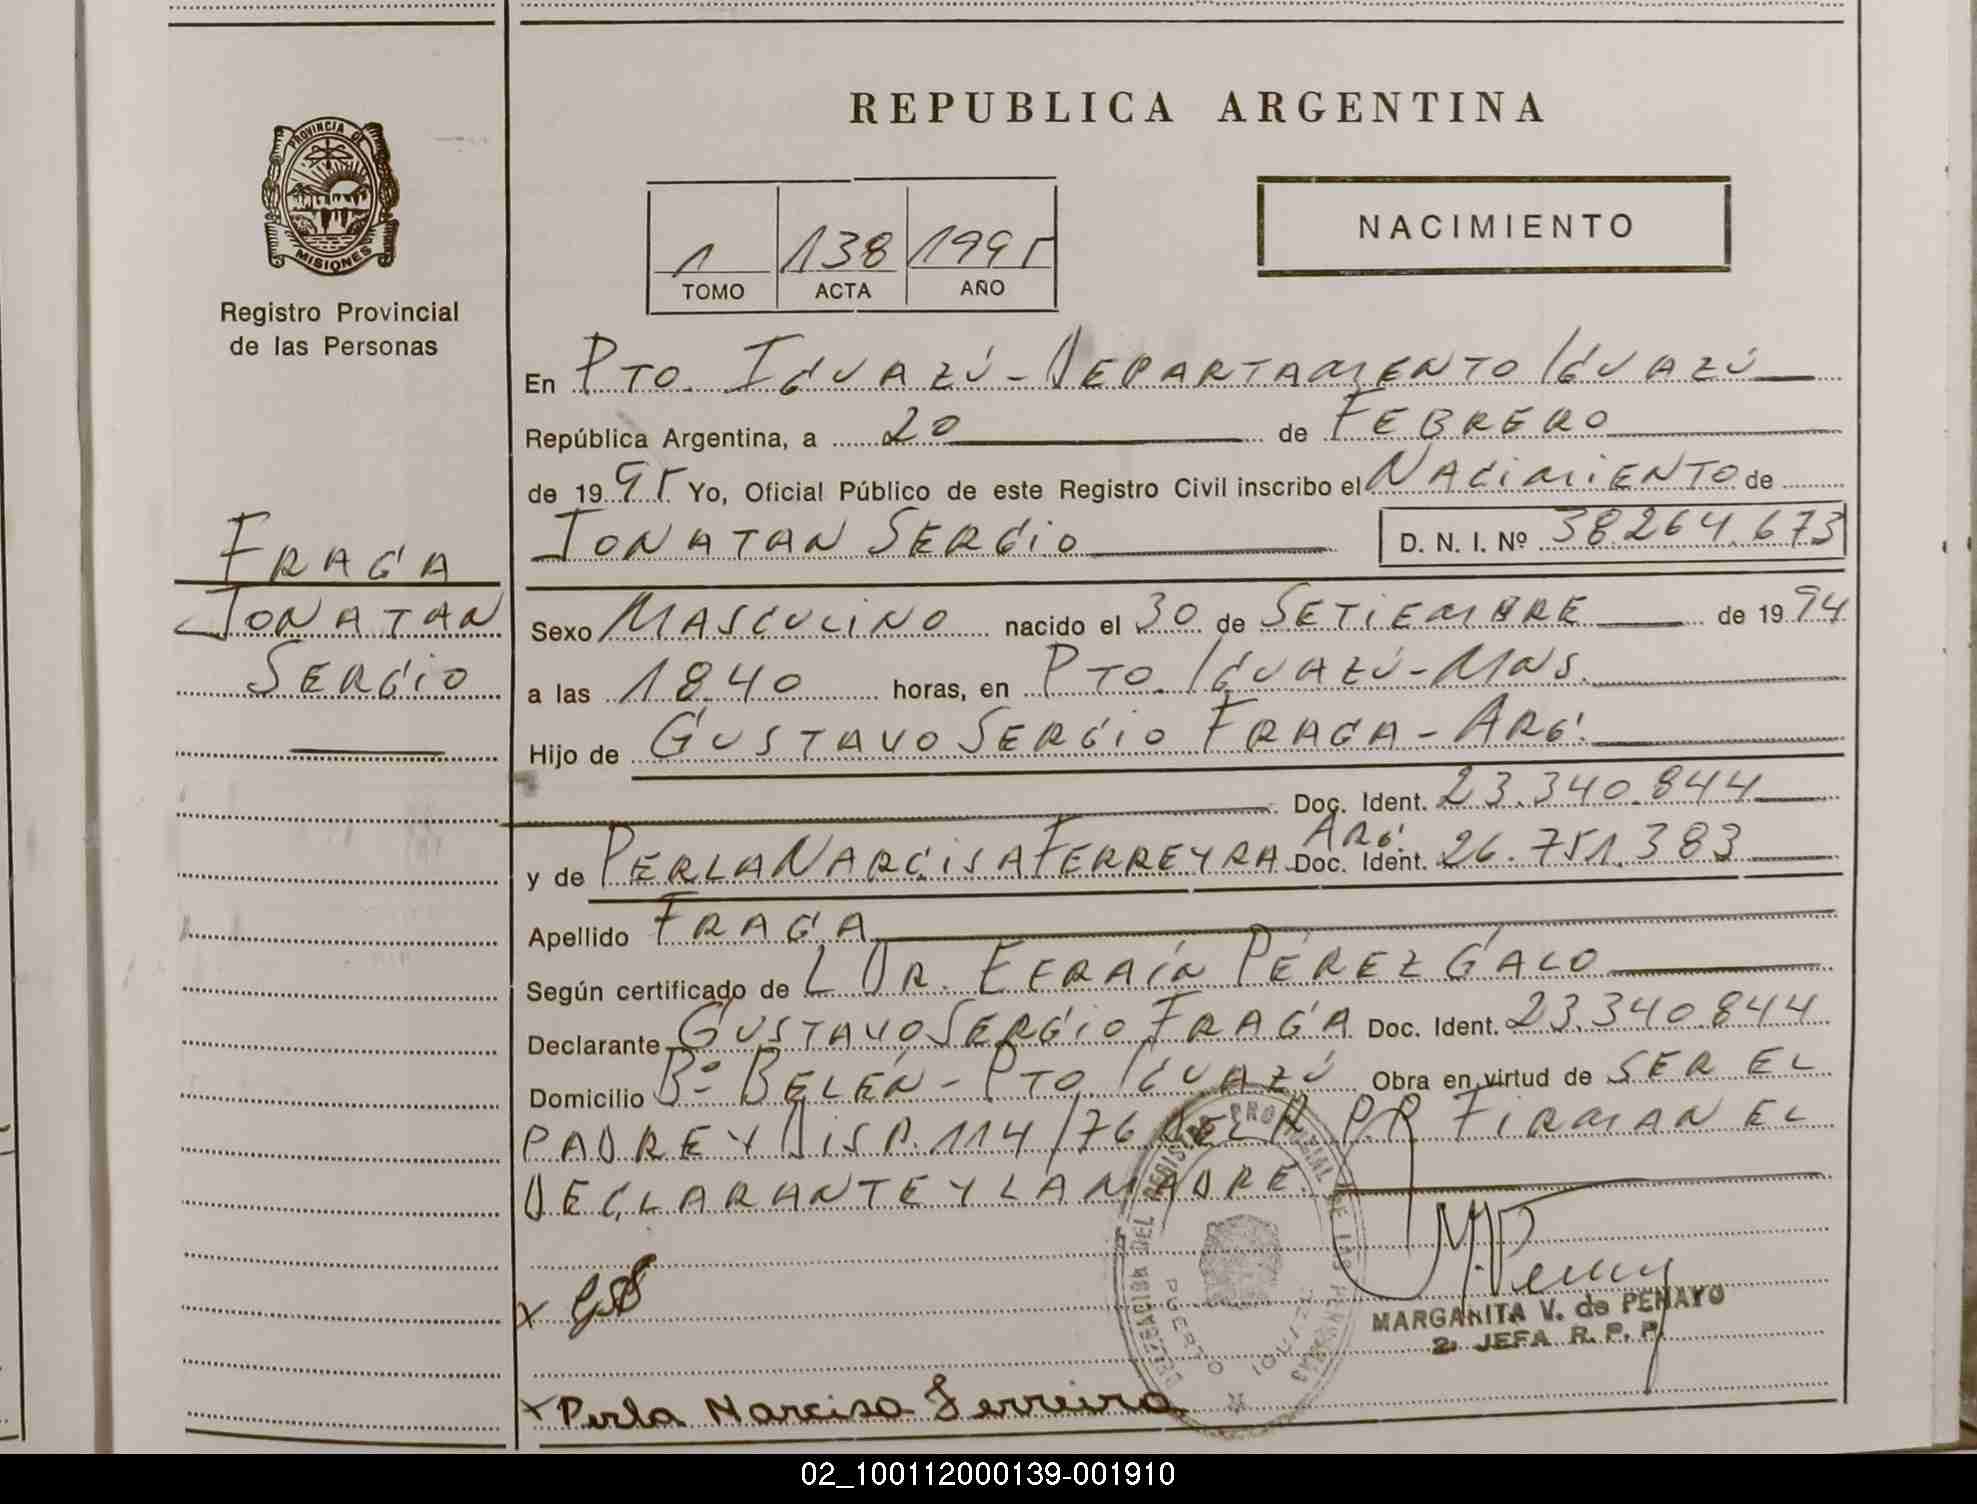 REPUBLICA ARGENTINA
PROVINCIA DE
MISIONES
Registro Provincial
de las Personas
1 138 1995
TOMO ACTA AÑO
NACIMIENTO
En PTO. IGUAZÚ - DEPARTAMENTO IGUAZÚ
República Argentina, a 20 de FEBRERO
de 1995 Yo, Oficial Público de este Registro Civil inscribo el NACIMIENTO de
JONATAN SERGIO D. N. I. Nº 38.264.673
FRAGA
JONATAN
SERGIO
Sexo MASCULINO nacido el 30 de SETIEMBRE de 1994
a las 1840 horas, en PTO. IGUAZÚ - MNS.
Hijo de GUSTAVO SERGIO FRAGA - ARG.
Doc. Ident. 23.340.844
ARG.
y de PERLA NARCISA FERREYRA Doc. Ident. 26.751.383
Apellido FRAGA
Según certificado de L DR. EFRAÍN PÉREZ GALO
Declarante GUSTAVO SERGIO FRAGA Doc. Ident. 23.340.844
Domicilio Bº BELÉN - PTO IGUAZÚ Obra en virtud de SER EL
PADRE Y DISP. 114/76 DEL R.P.P. FIRMAN EL
DECLARANTE Y LA MADRE.
x GSF
MARGARITA V. de PENAYO
2ª JEFA R. P. P.
x Perla Narcisa Ferreira
DELEGACION DEL REGISTRO PROVINCIAL DE LAS PERSONAS
PUERTO
02_100112000139-001910